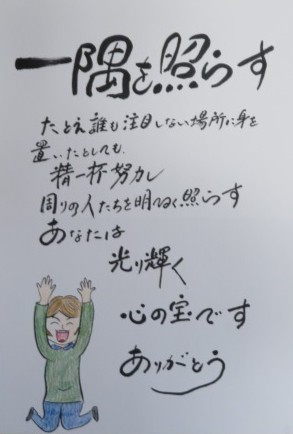 一隅を照らす
たとえ誰も注目しない場所に身を
置いたとしても
精一杯努力し
周りの人たちを明るく照らす
あなたは
光り輝く
心の宝です
ありがとう